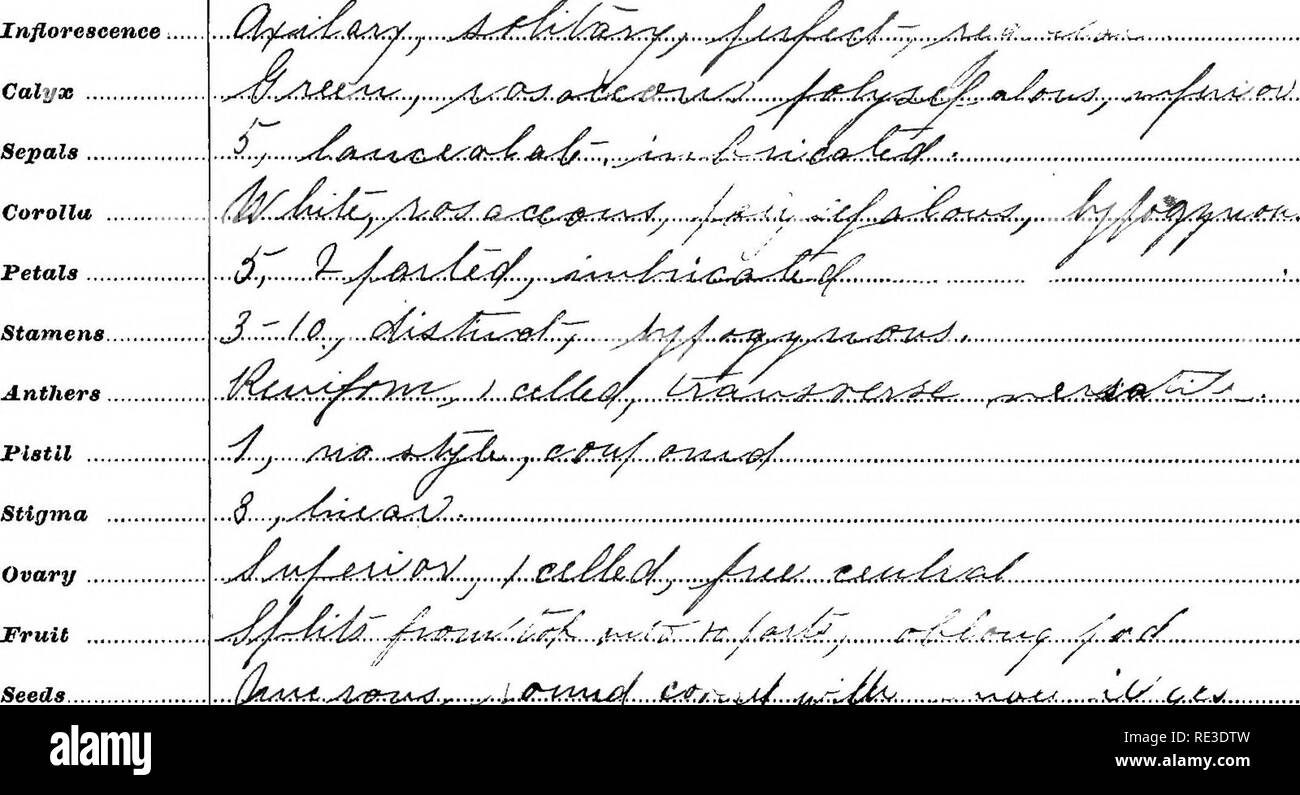 Inflorescence Axilary, solitary, perfect, regular.
Calyx Green, rosaceous polysepalous, inferior
Sepals 5, lanceolate, imbricated.
Corolla White, rosaceous, polysepalous, hypogynous
Petals 5, 2 parted, imbricated
Stamens 3-10, distinct, hypogynous.
Anthers Reniform, 1 celled, transverse versatile.
Pistil 1, no style, compound
Stigma 3, linear.
Ovary Superior, 1 celled, free central
Fruit Splits from top into parts, oblong pod
Seeds Numerous, round with
alamy
Image ID: RE3DTW
www.alamy.com